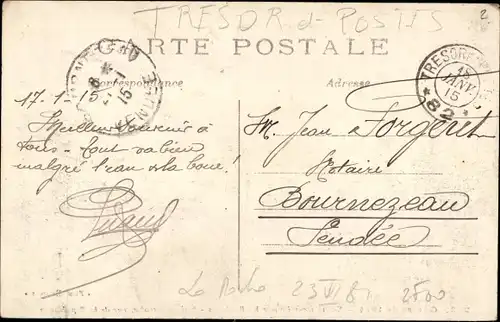 TRESOR et POSTES
2
CARTE POSTALE
Correspondance
Adresse
TRESOR
18
JANV
15
* 82 *
8 *
15
VENDÉE
17-1-15
Meilleur souvenir à
tous - tout va bien
malgré l'eau et la boue!
M. Jean Forgerit
Notaire
Bournezeau
Vendée
23 VI 81
2500